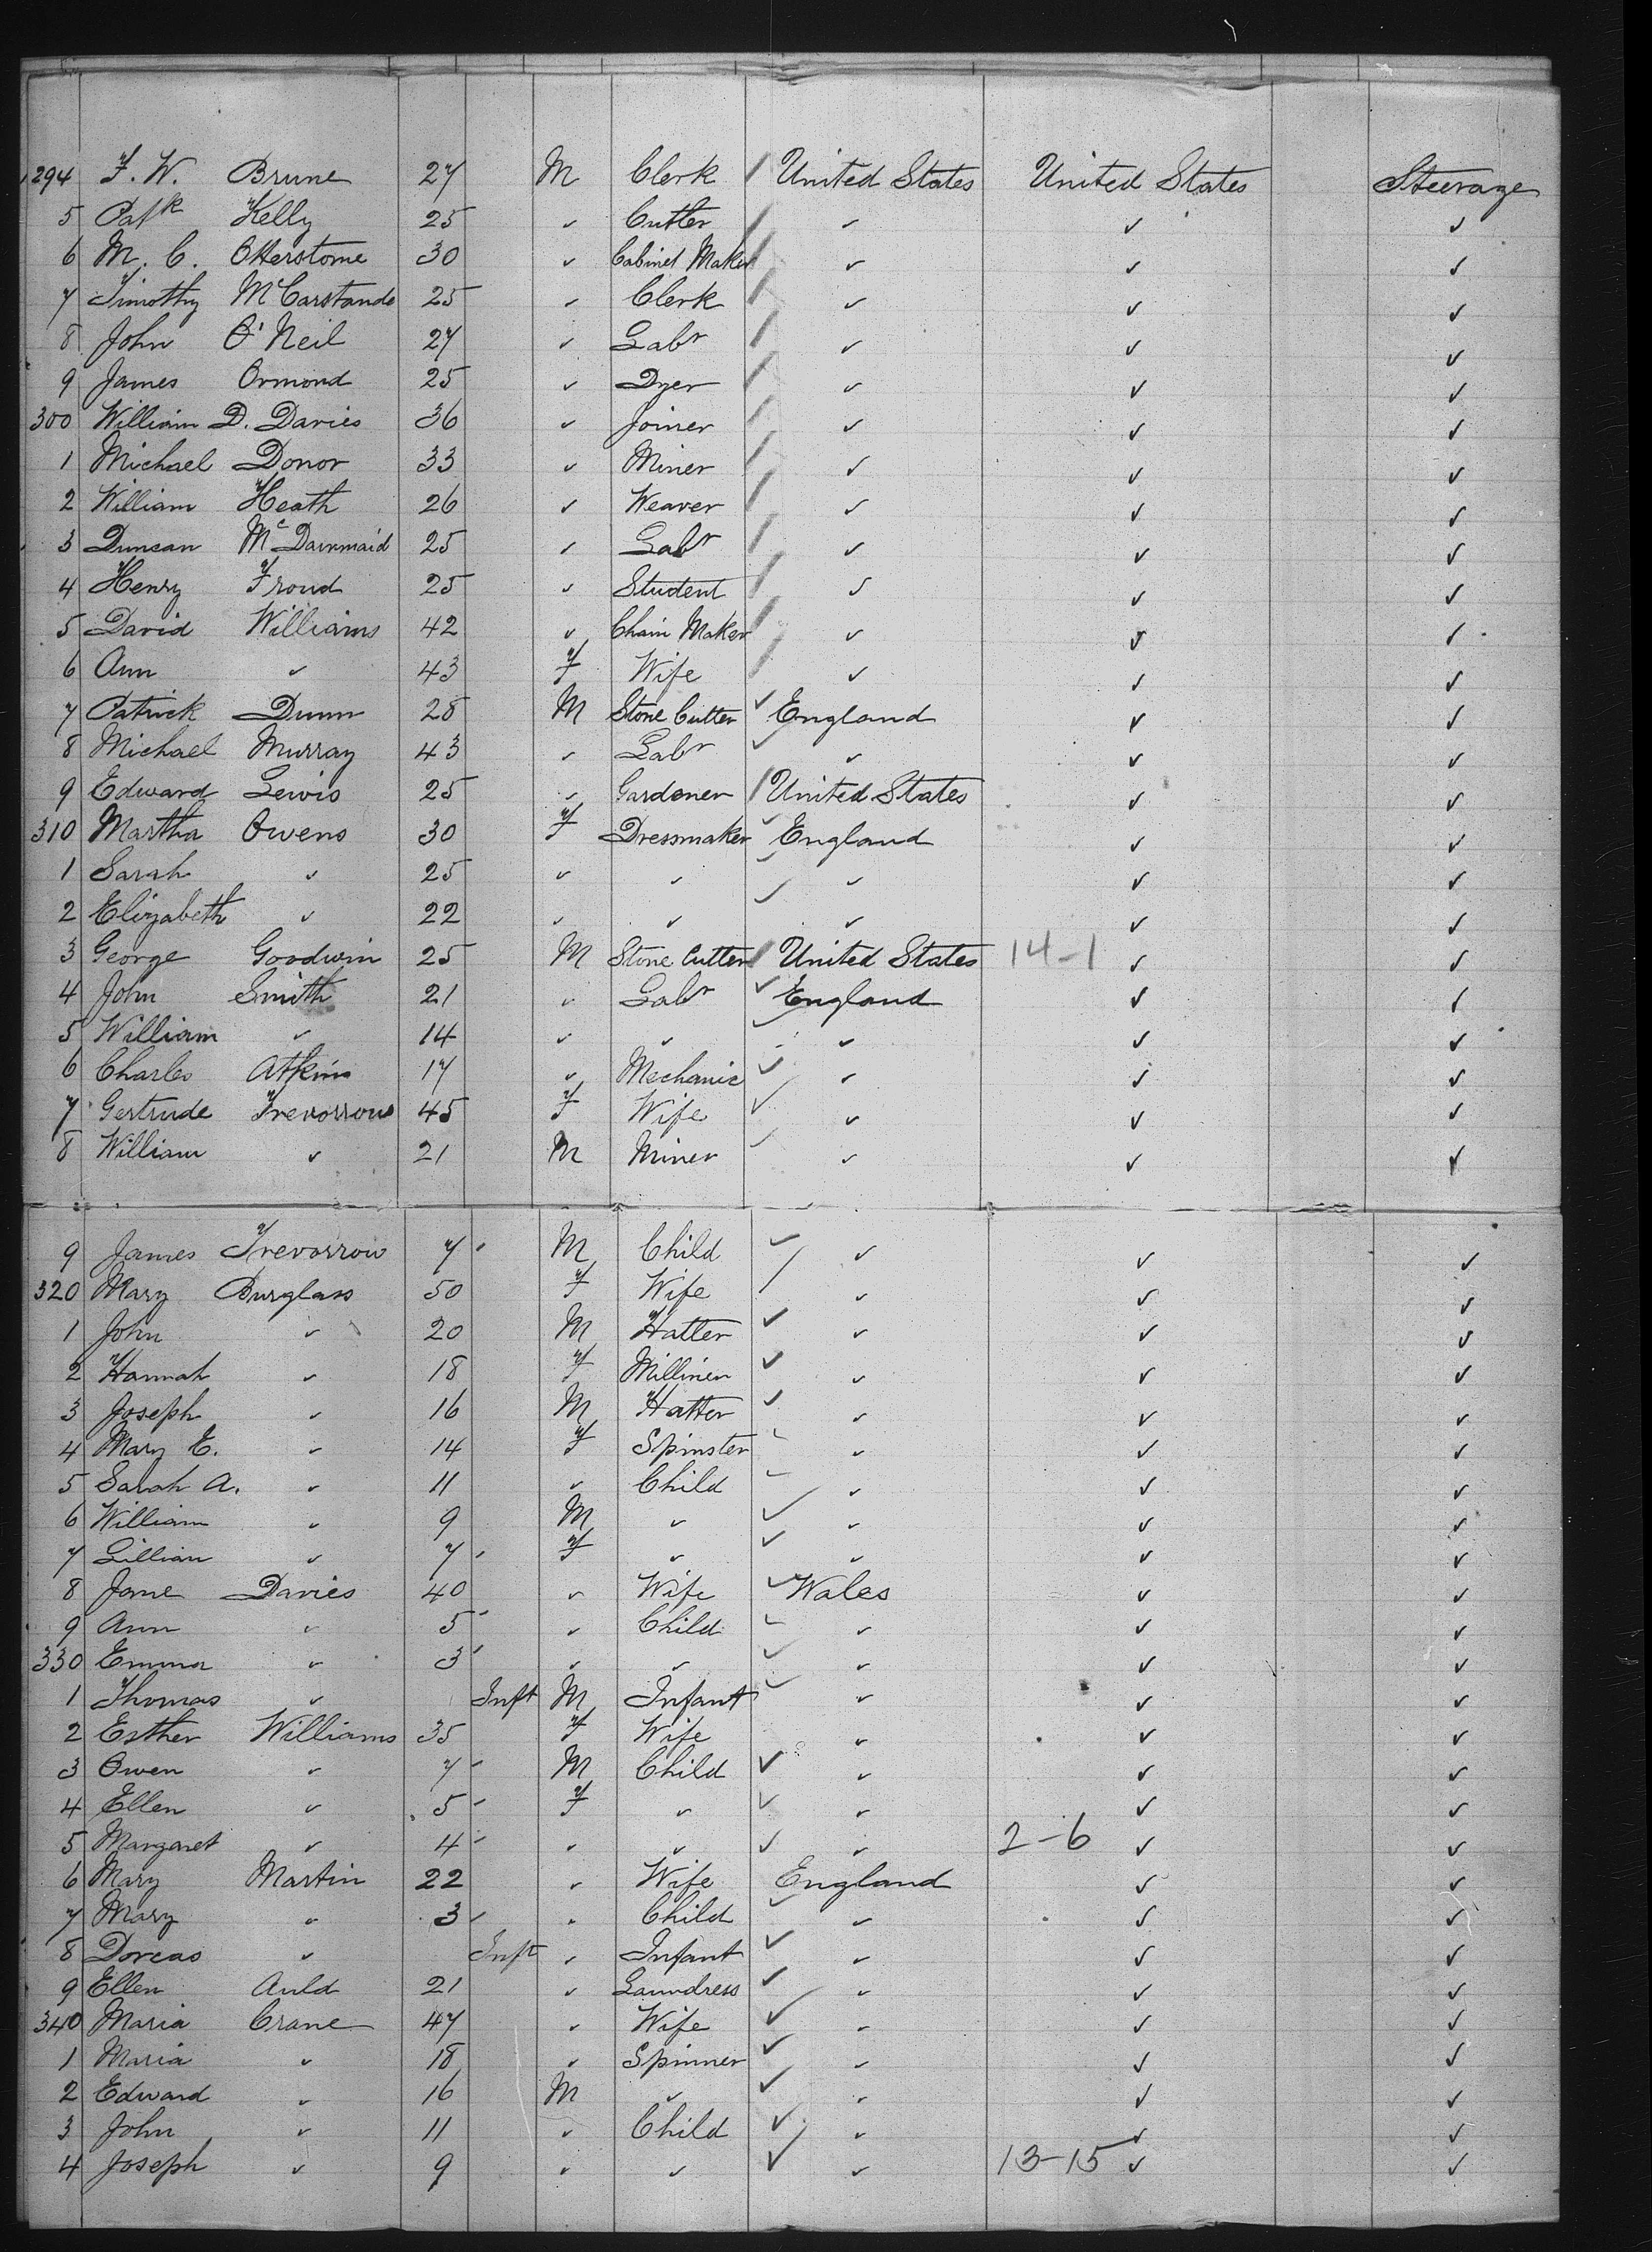 294 F. W. Brune 27 M Clerk United States United States Steerage
5 Patk Kelly 25 " Cutler " " "
6 M. C. Okerstome 30 " Cabinet Maker " " "
7 Timothy McCarstando 25 " Clerk " " "
8 John O'Neil 27 " Labr " " "
9 James Ormond 25 " Dyer " " "
300 William D. Davies 36 " Joiner " " "
1 Michael Donor 33 " Miner " " "
2 William Heath 26 " Weaver " " "
3 Duncan McDairmaid 25 " Labr " " "
4 Henry Froud 25 " Student " " "
5 David Williams 42 " Chain Maker " " "
6 Ann " 43 F Wife " " "
7 Patrick Dunn 28 M Stone Cutter England " "
8 Michael Murray 43 " Labr " " "
9 Edward Lewis 25 " Gardener United States " "
310 Martha Owens 30 F Dressmaker England " "
1 Sarah " 25 " " " " "
2 Elizabeth " 22 " " " " "
3 George Goodwin 25 M Stone Cutter United States 14-1 " "
4 John Smith 21 " Labr England " "
5 William " 14 " " " " "
6 Charles Atkins 17 " Mechanic " " "
7 Gertrude Trevorrow 45 F Wife " " "
8 William " 21 M Miner " " "
9 James Trevorrow 7 M Child " " "
320 Mary Burglass 50 F Wife " " "
1 John " 20 M Hatter " " "
2 Hannah " 18 F Milliner " " "
3 Joseph " 16 M Hatter " " "
4 Mary E. " 14 F Spinster " " "
5 Sarah A. " 11 " Child " " "
6 William " 9 M " " " "
7 Lillian " 7 F " " " "
8 Jane Davies 40 " Wife Wales " "
9 Ann " 5 " Child " " "
330 Emma " 3 " " " " "
1 Thomas " Inft M Infant " " "
2 Esther Williams 35 F Wife " " "
3 Owen " 7 M Child " " "
4 Ellen " 5 F " " " "
5 Margaret " 4 " " " 2-6 " "
6 Mary Martin 22 " Wife England " "
7 Mary " 3 " Child " " "
8 Dorcas " Inft " Infant " " "
9 Ellen Auld 21 " Laundress " " "
340 Maria Crane 47 " Wife " " "
1 Maria " 18 " Spinner " " "
2 Edward " 16 M " " " "
3 John " 11 " Child " " "
4 Joseph " 9 " " " 13-15 " "